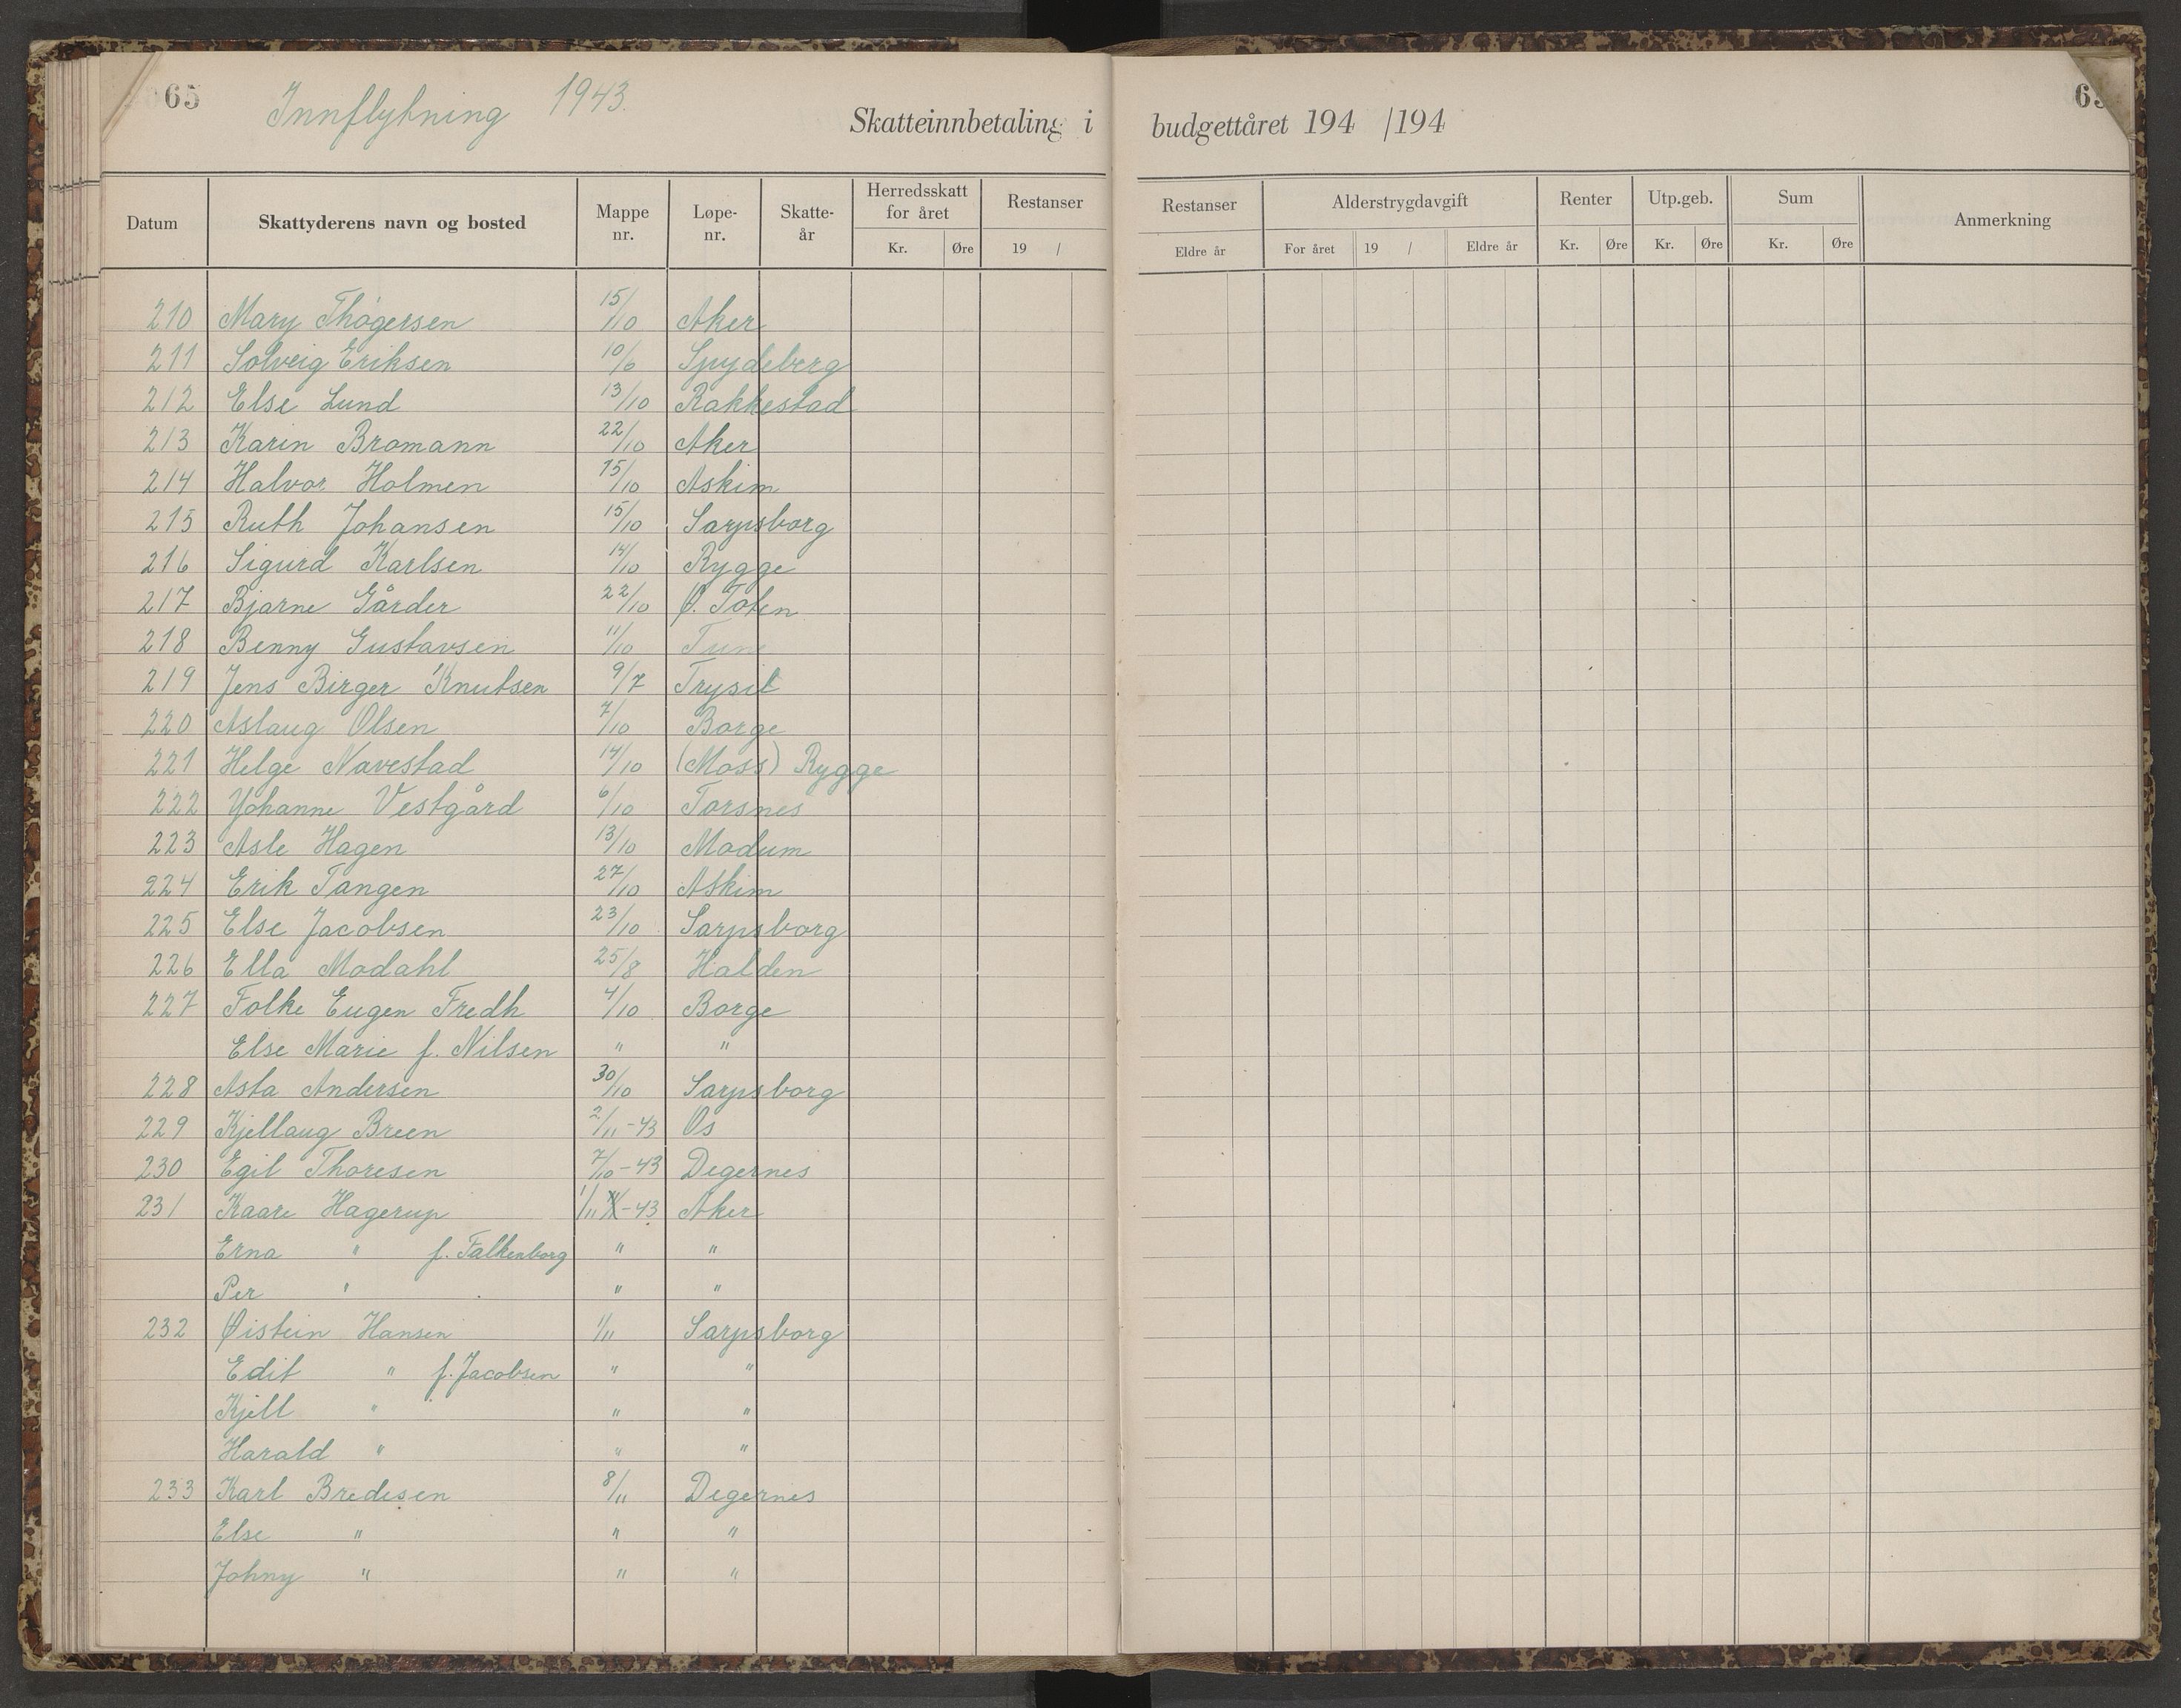 65
Innflytning 1943.
Skatteinnbetaling i budgettåret 194 /194
Datum Skattyderens navn og bosted Mappe nr. Løpe- nr. Skatte- år Herredsskatt for året Kr. Øre Restanser 19 / Restanser Eldre år Alderstrygdavgift For året 19 / Eldre år Renter Kr. Øre Utp.geb. Kr. Øre Sum Kr. Øre Anmerkning
210 Mary Thøgersen 15/10 Aker
211 Solveig Eriksen 10/6 Spydeberg
212 Else Lund 13/10 Rakkestad
213 Karin Bromann 22/10 Aker
214 Halvor Holmen 15/10 Askim
215 Ruth Johansen 15/10 Sarpsborg
216 Sigurd Karlsen 14/10 Rygge
217 Bjarne Gårder 22/10 Ø. Toten
218 Benny Gustavsen 11/10 Tune
219 Jens Birger Knutsen 9/7 Trysil
220 Aslaug Olsen 7/10 Borge
221 Helge Navestad 14/10 (Moss) Rygge
222 Johanne Vestgård 6/10 Torsnes
223 Asle Hagen 13/10 Modum
224 Erik Tangen 27/10 Askim
225 Else Jacobsen 23/10 Sarpsborg
226 Ella Modahl 25/8 Halden
227 Folke Eugen Fredh 4/10 Borge
Else Marie f. Nilsen " "
228 Asta Andersen 30/10 Sarpsborg
229 Kjellaug Breen 2/11-43 Os
230 Egil Thoresen 7/10-43 Degernes
231 Kaare Hagerup 1/11-43 Aker
Erna " f. Falkenborg " "
Per " " "
232 Øistein Hansen 1/11 Sarpsborg
Edit " f. Jacobsen " "
Kjell " " "
Harald " " "
233 Karl Bredesen 8/11 Degernes
Else " " "
Johny " " "